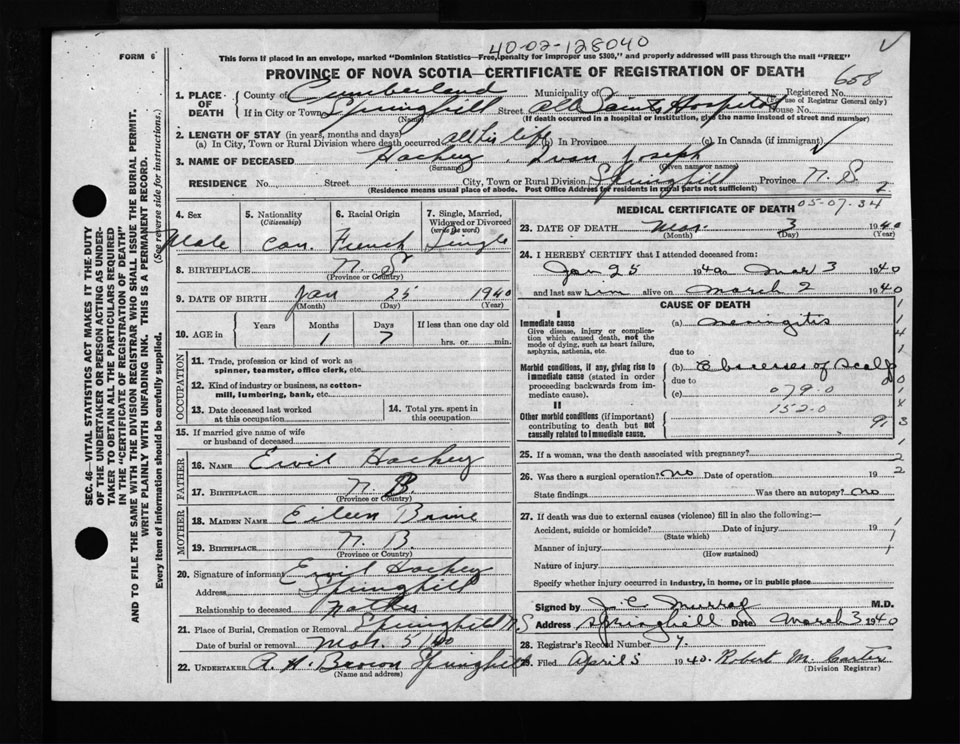 40-02-128040
FORM 6
This form if placed in an envelope, marked "Dominion Statistics—Free, (penalty for improper use $300," and properly addressed will pass through the mail "FREE"
PROVINCE OF NOVA SCOTIA—CERTIFICATE OF REGISTRATION OF DEATH
658
1. PLACE OF DEATH
County of Cumberland Municipality of Registered No.
(For use of Registrar General only)
If in City or Town Springhill Street All Saints Hospital House No.
(Name) (If death occurred in a hospital or institution, give the name instead of street and number)
2. LENGTH OF STAY (in years, months and days)
(a) In City, Town or Rural Division where death occurred all his life (b) In Province (c) In Canada (if immigrant)
3. NAME OF DECEASED Hachey, Ivan Joseph
(Surname) (Given name or names)
RESIDENCE No. Street City, Town or Rural Division Springhill Province N. S.
(Residence means usual place of abode. Post Office Address for residents in rural parts not sufficient)
2
05-07.34
4. Sex 5. Nationality (Citizenship) 6. Racial Origin 7. Single, Married, Widowed or Divorced (write the word)
Male Can. French Single
8. BIRTHPLACE N. S.
(Province or Country)
9. DATE OF BIRTH Jan 25 1940
(Month) (Day) (Year)
10. AGE in Years Months Days If less than one day old
1 7 hrs. or min.
OCCUPATION
11. Trade, profession or kind of work as spinner, teamster, office clerk, etc.
12. Kind of industry or business, as cotton-mill, lumbering, bank, etc.
13. Date deceased last worked at this occupation
14. Total yrs. spent in this occupation
15. If married give name of wife or husband of deceased
FATHER
16. NAME Ervil Hachey
17. BIRTHPLACE N. B.
(Province or Country)
MOTHER
18. MAIDEN NAME Eileen Brine
19. BIRTHPLACE N. B.
(Province or Country)
20. Signature of informant Ervil Hachey
Address Springhill
Relationship to deceased Father
21. Place of Burial, Cremation or Removal Springhill N.S
Date of burial or removal Mar. 5/40
22. UNDERTAKER A. H. Brown Springhill
(Name and address)
MEDICAL CERTIFICATE OF DEATH
23. DATE OF DEATH Mar. 3 1940
(Month) (Day) (Year)
24. I HEREBY CERTIFY that I attended deceased from:
Jan 25 1940 to Mar 3 1940
and last saw him alive on March 2 1940
CAUSE OF DEATH
I
Immediate cause (a) Meningitis
Give disease, injury or complication which caused death, not the mode of dying, such as heart failure, asphyxia, asthenia, etc.
due to
Morbid conditions, if any, giving rise to immediate cause (stated in order proceeding backwards from immediate cause).
(b) Abscesses of Scalp
due to
(c) 079.0
152.0
II
Other morbid conditions (if important) contributing to death but not causally related to immediate cause.
25. If a woman, was the death associated with pregnancy?
26. Was there a surgical operation? no Date of operation 19
State findings Was there an autopsy? no
27. If death was due to external causes (violence) fill in also the following:—
Accident, suicide or homicide? Date of injury 19
(State which)
Manner of injury
(How sustained)
Nature of injury
Specify whether injury occurred in industry, in home, or in public place
Signed by J. C. Murray M.D.
Address Springhill Date March 3 1940
28. Registrar's Record Number 7.
29. Filed April 5 1940. Robert M. Carter
(Division Registrar)
SEC. 46—VITAL STATISTICS ACT MAKES IT THE DUTY OF THE UNDERTAKER OR PERSON ACTING AS UNDERTAKER TO OBTAIN ALL THE PARTICULARS REQUIRED IN THE "CERTIFICATE OF REGISTRATION OF DEATH"
AND TO FILE THE SAME WITH THE DIVISION REGISTRAR WHO SHALL ISSUE THE BURIAL PERMIT.
WRITE PLAINLY WITH UNFADING INK. THIS IS A PERMANENT RECORD.
Every item of information should be carefully supplied. (See reverse side for instructions.)